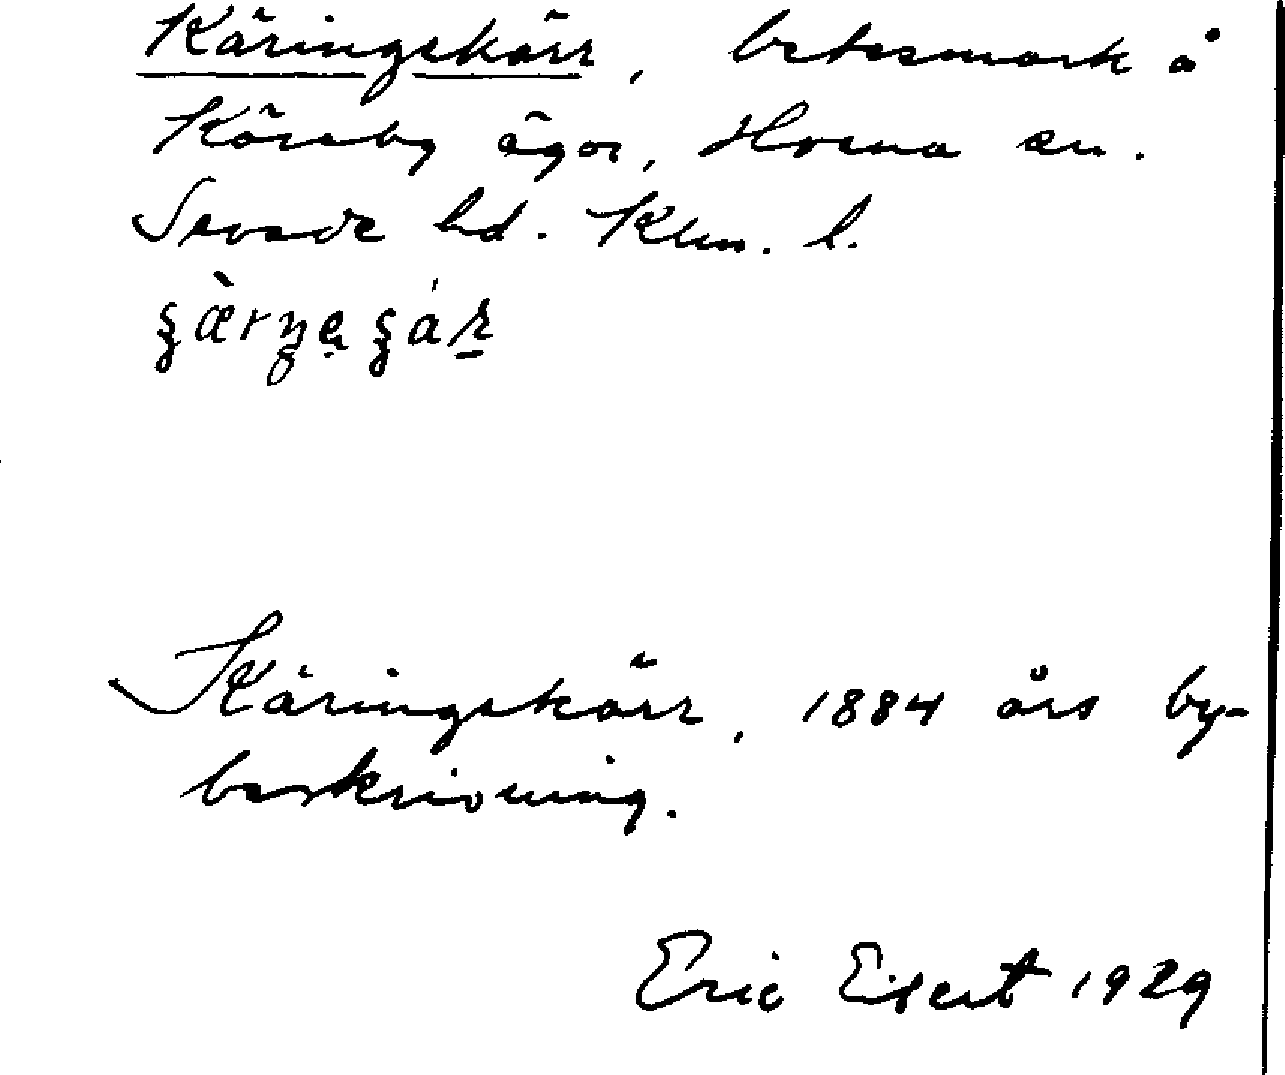 Käringekärr, betesmark å
Köreby ägor, Horna sn.
Sevede hd. Klm. l.
Käringekärr, 1884 års by-
beskrivning.
Eric 1929